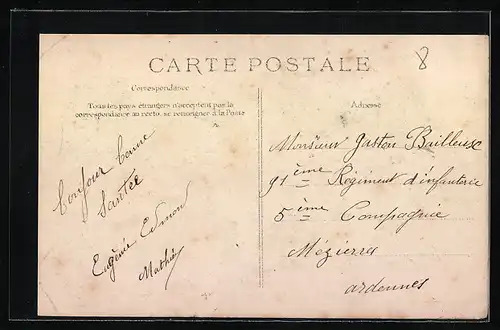 8
CARTE POSTALE
Correspondance
Tous les pays étrangers n'acceptent pas la
correspondance au recto, se renseigner à la Poste
Adresse
Bonjour bonne
Santée
Eugénie Edmon
Mathieu
Monsieur Gaston Bailleux
91ème Régiment d'infanterie
5ème Compagnie
Mézierra
ardennes